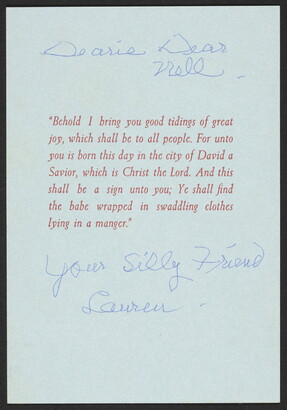 Dearie Dear
Nell.
"Behold I bring you good tidings of great
joy, which shall be to all people. For unto
you is born this day in the city of David a
Savior, which is Christ the Lord. And this
shall be a sign unto you; Ye shall find
the babe wrapped in swaddling clothes
lying in a manger."
Your Silly Friend
Lauren.